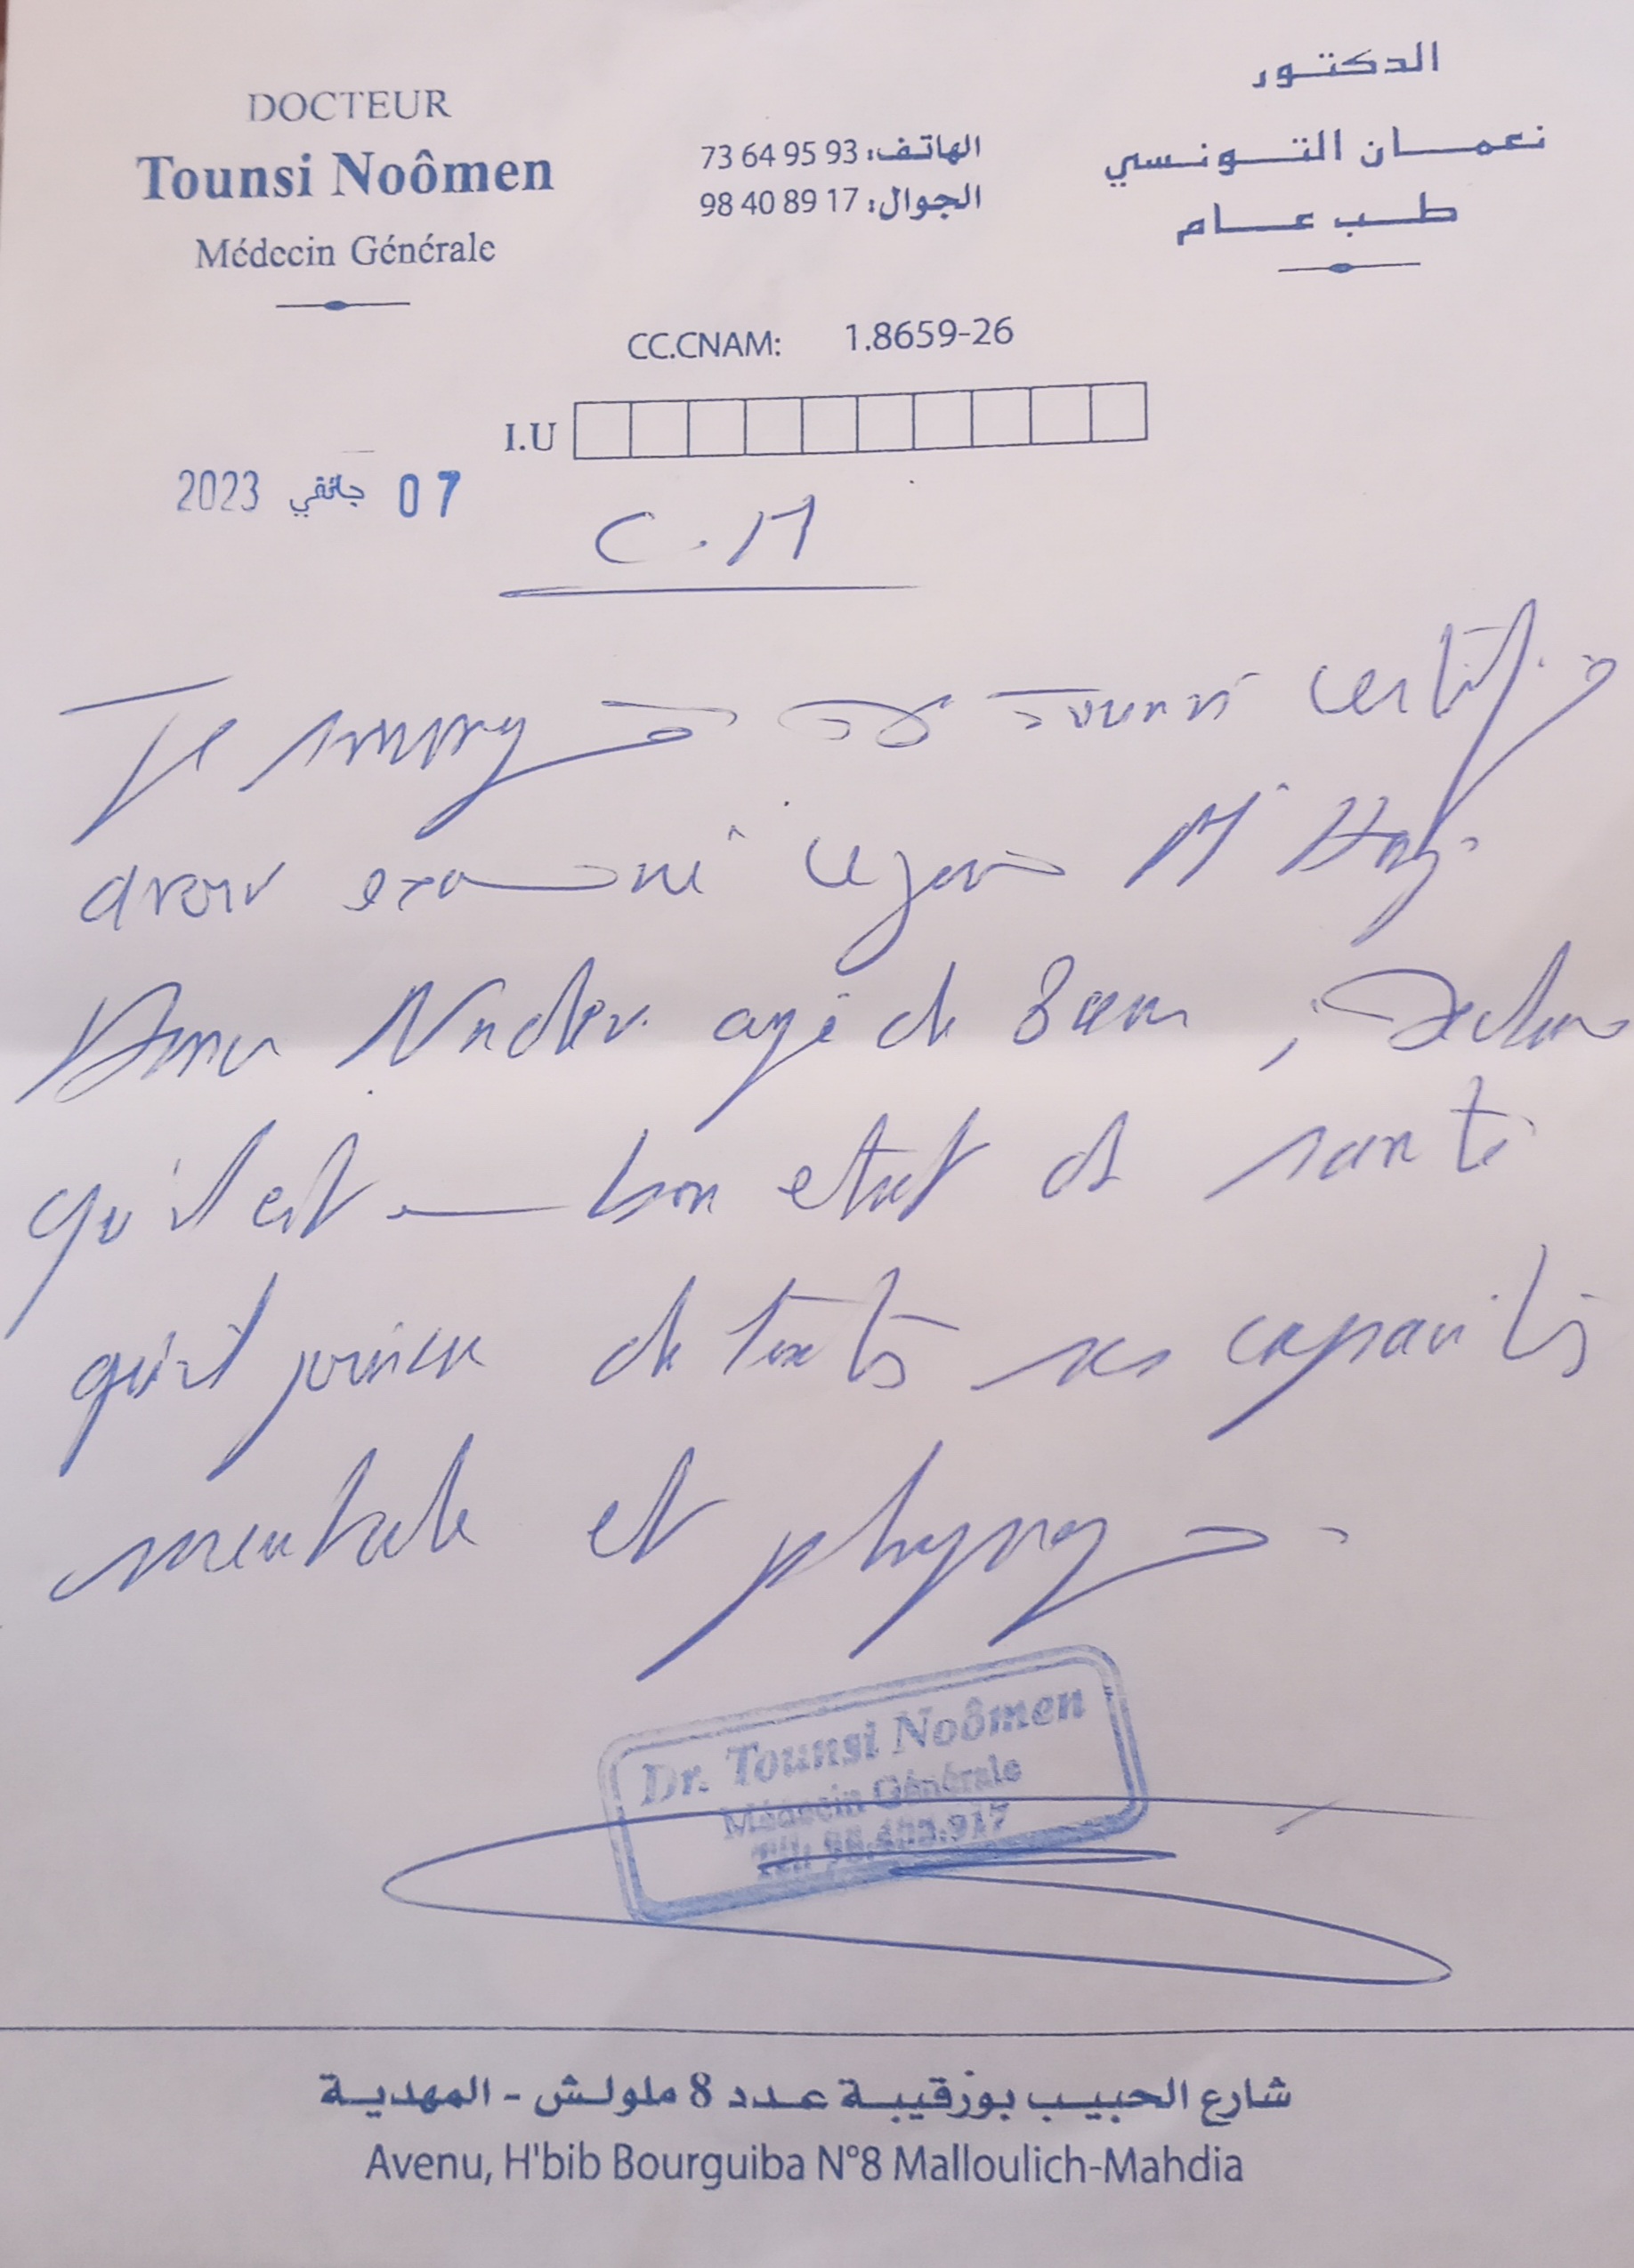 DOCTEUR
Tounsi Noômen
Médecin Générale
الهاتف: 73 64 95 93
الجوال: 98 40 89 17
الدكتور
نعمان التونسي
طب عام
CC.CNAM: 1.8659-26
I.U
07 جانفي 2023
C.M
Je Dr Tounsi certifie
avoir examiné ce jour Mr
Nader agé de
qu'il est en bon etat de santé
qu'il jouisse de toutes ses capacités
mentale et physique.
Dr. Tounsi Noômen
Médecin Générale
Tél: 98.408.917
شارع الحبيب بورقيبة عدد 8 ملولش - المهدية
Avenu, H'bib Bourguiba N°8 Malloulich-Mahdia